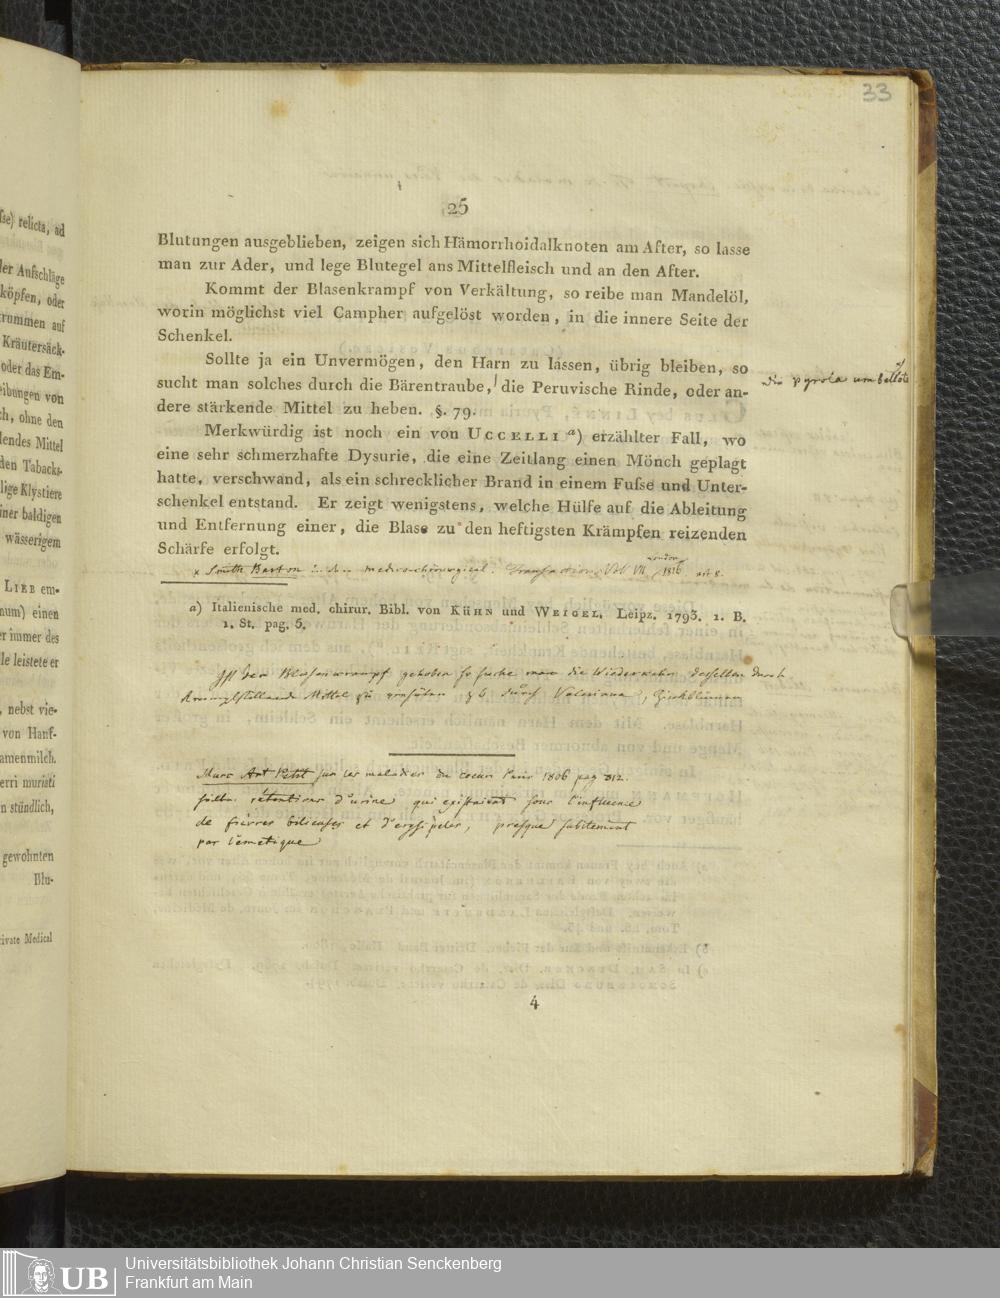 33
25
Blutungen ausgeblieben, zeigen sich Hämorrhoidalknoten am After, so lasse
man zur Ader, und lege Blutegel ans Mittelfleisch und an den After.
Kommt der Blasenkrampf von Verkältung, so reibe man Mandelöl,
worin möglichst viel Campher aufgelöst worden, in die innere Seite der
Schenkel.
Sollte ja ein Unvermögen, den Harn zu lassen, übrig bleiben, so
sucht man solches durch die Bärentraube, die Peruvische Rinde, oder an-
dere stärkende Mittel zu heben. §. 79.
die pyrola umbellata
Merkwürdig ist noch ein von UCCELLI a) erzählter Fall, wo
eine sehr schmerzhafte Dysurie, die eine Zeitlang einen Mönch geplagt
hatte, verschwand, als ein schrecklicher Brand in einem Fuſse und Unter-
schenkel entstand. Er zeigt wenigstens, welche Hülfe auf die Ableitung
und Entfernung einer, die Blase zu den heftigsten Krämpfen reizenden
Schärfe erfolgt.
x Smith Barton in den medico-chirurgical Transactions Vol VII London 1816 art 8.
a) Italienische med. chirur. Bibl. von KÜHN und WEIGEL, Leipz. 1793. 1. B.
1. St. pag. 5.
Ist der Blasenkrampf gehoben so suche man die Wiederkehr desselben durch
Krampfstillende Mittel zu verhüten z b durch Valeriana, Zinkblumen
Marc Ant Petit sur les maladies du coeur Paris 1806 pag 312.
retentions d'urine qui existaient sous l'influence
de fievres bilieuses et d'erysipeles, presque subitement
par l'emetique
4
ſse) relicta, ad
der Aufschläge
köpfen, oder
Kräutersäck-
oder das Em-
eibungen von
ch, ohne den
lendes Mittel
den Tabacks-
lige Klystiere
iner baldigen
wässerigem
LIEB em-
num) einen
er immer des
le leistete er
, nebst vie-
von Hanf-
amenmilch.
erri muristi
n stündlich,
gewohnten
Blu-
rivate Medical
UB
Universitätsbibliothek Johann Christian Senckenberg
Frankfurt am Main